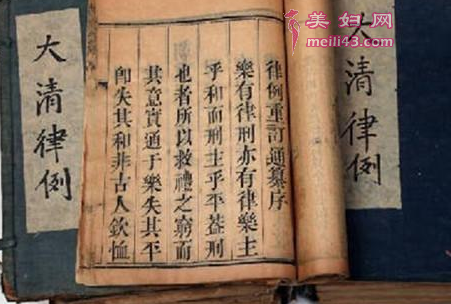 美妇网
meili43.com
大清律例
律例重訂通纂序
樂有律刑亦有律樂主
乎和而刑主乎平蓋刑
也者所以救禮之窮而
其意實通于樂失其平
卽失其和非古人欽恤
大清律例